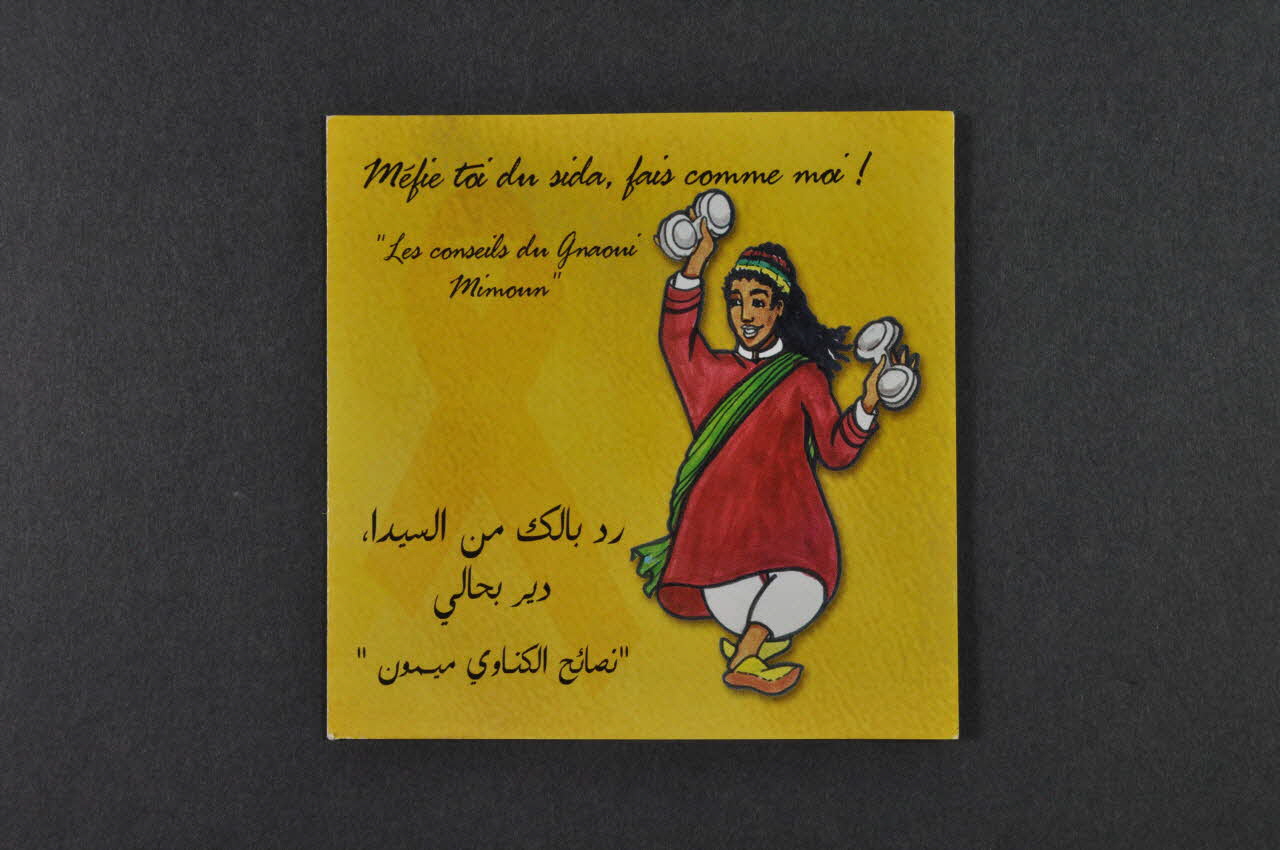 Méfie toi du sida, fais comme moi !
"Les conseils du Gnaoui
Mimoun"
رد بالك من السيدا،
دير بحالي
"نصائح الكناوي ميمون "